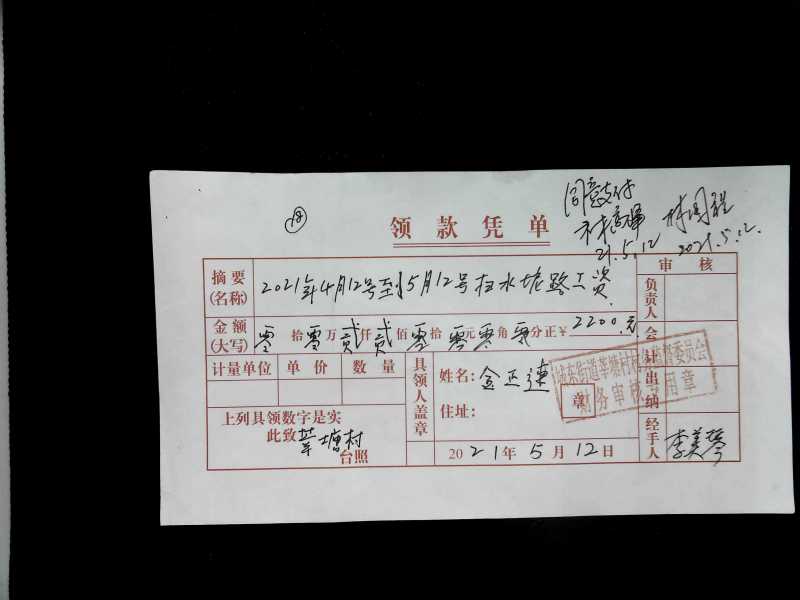 ⑱
同意支付
21.5.12
2021.5.12.
领款凭单
审核
摘要(名称) 2021年4月12号至5月12号扫水垅路工资.
负责人
金额(大写) 零拾零万贰仟贰佰零拾零元零角零分正¥ 2200.元
会计
计量单位 单价 数量
具领人盖章
姓名: 金正速
住址:
章
城东街道莘塘村村务监督委员会
财务审核专用章
出纳
上列具领数字是实
此致 莘塘村
台照
2021年5月12日
经手人 李美琴